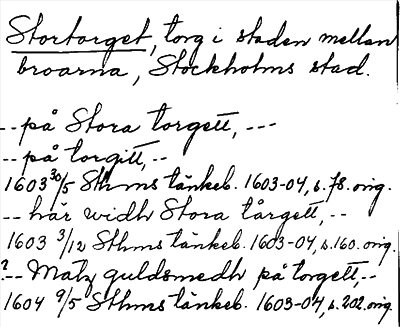 Stortorget, torg i staden mellan
broarna, Stockholms stad.
-- på Stora torgett, ---
-- på torgitt, --
1603 30/5 Sthms tänkeb. 1603-04, s. 78. orig.
-- här widh Stora tårgett, --
1603 3/12 Sthms tänkeb. 1603-04, s. 160. orig.
?-- Matz guldsmedh på torgett, --
1604 9/5 Sthms tänkeb. 1603-04, s. 202. orig.